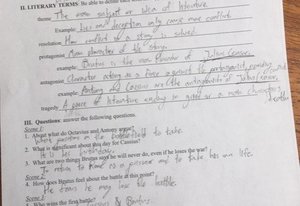 II. LITERARY TERMS: Be able to define each
theme The main subject or idea of literature.
Example: Lies and deception only cause more conflict.
resolution How conflict in a story is solved.
protagonist Main character of the story.
example: Brutus is the main character of Julius Caesar.
antagonist Character acting as a force against the protagonist,
example: Antony and Caesar are the antagonists of Julius Caesar.
tragedy A piece of literature ending in a main characters
III. Questions: answer the following questions.
Scene 1
1. About what do Octavius and Antony argue?
What position on the battlefield to take.
2. What is significant about this day for Cassius?
It is his birthday.
3. What are two things Brutus says he will never do, even if he loses the war?
To return to Rome as a prisoner and to take his own life.
Scene 2
4. How does Brutus feel about the battle at this point?
He fears he may lose the battle.
Scene 3
5. Who wins the first battle?
& Brutus